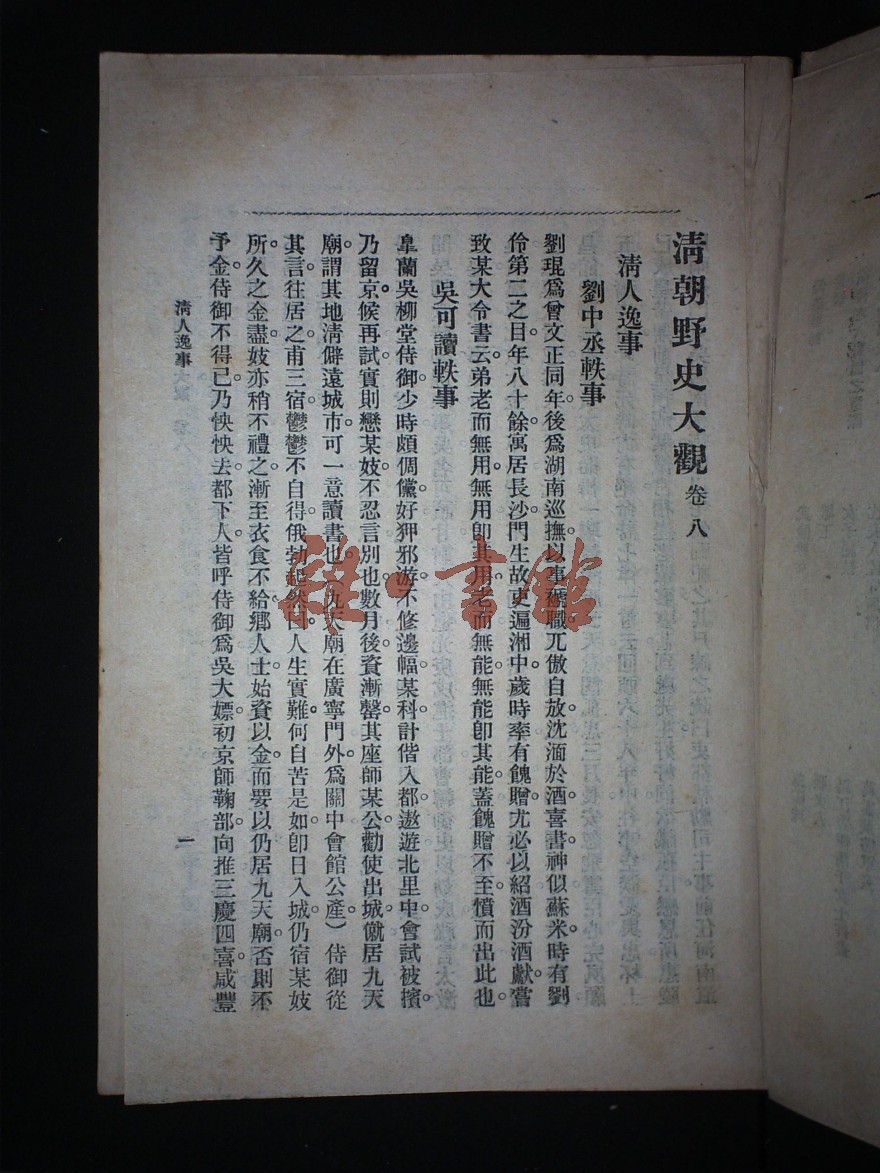 清朝野史大觀 卷八
清人逸事
劉中丞軼事
劉琨爲曾文正同年後爲湖南巡撫以事褫職兀傲自放沈湎於酒喜書神似蘇米時有劉
伶第二之目年八十餘寓居長沙門生故吏遍湘中歲時率有餽贈尤必以紹酒汾酒獻嘗
致某大令書云弟老而無用無用卽其用老而無能無能卽其能蓋餽贈不至憤而出此也
吳可讀軼事
臯蘭吳柳堂侍御少時頗倜儻好狎邪游不修邊幅某科計偕入都遨遊北里中會試被擯
乃留京候再試實則戀某妓不忍言別也數月後資漸罄其座師某公勸使出城僦居九天
廟謂其地清僻遠城市可一意讀書也（九天廟在廣寧門外爲關中會館公產）侍御從
其言往居之甫三宿鬱鬱不自得俄勃起然曰人生實難何自苦是如卽日入城仍宿某妓
所久之金盡妓亦稍不禮之漸至衣食不給鄉人士始資以金而要以仍居九天廟否則不
予金侍御不得已乃怏怏去都下人皆呼侍御爲吳大嫖初京師鞠部向推三慶四喜咸豐
清人逸事
一